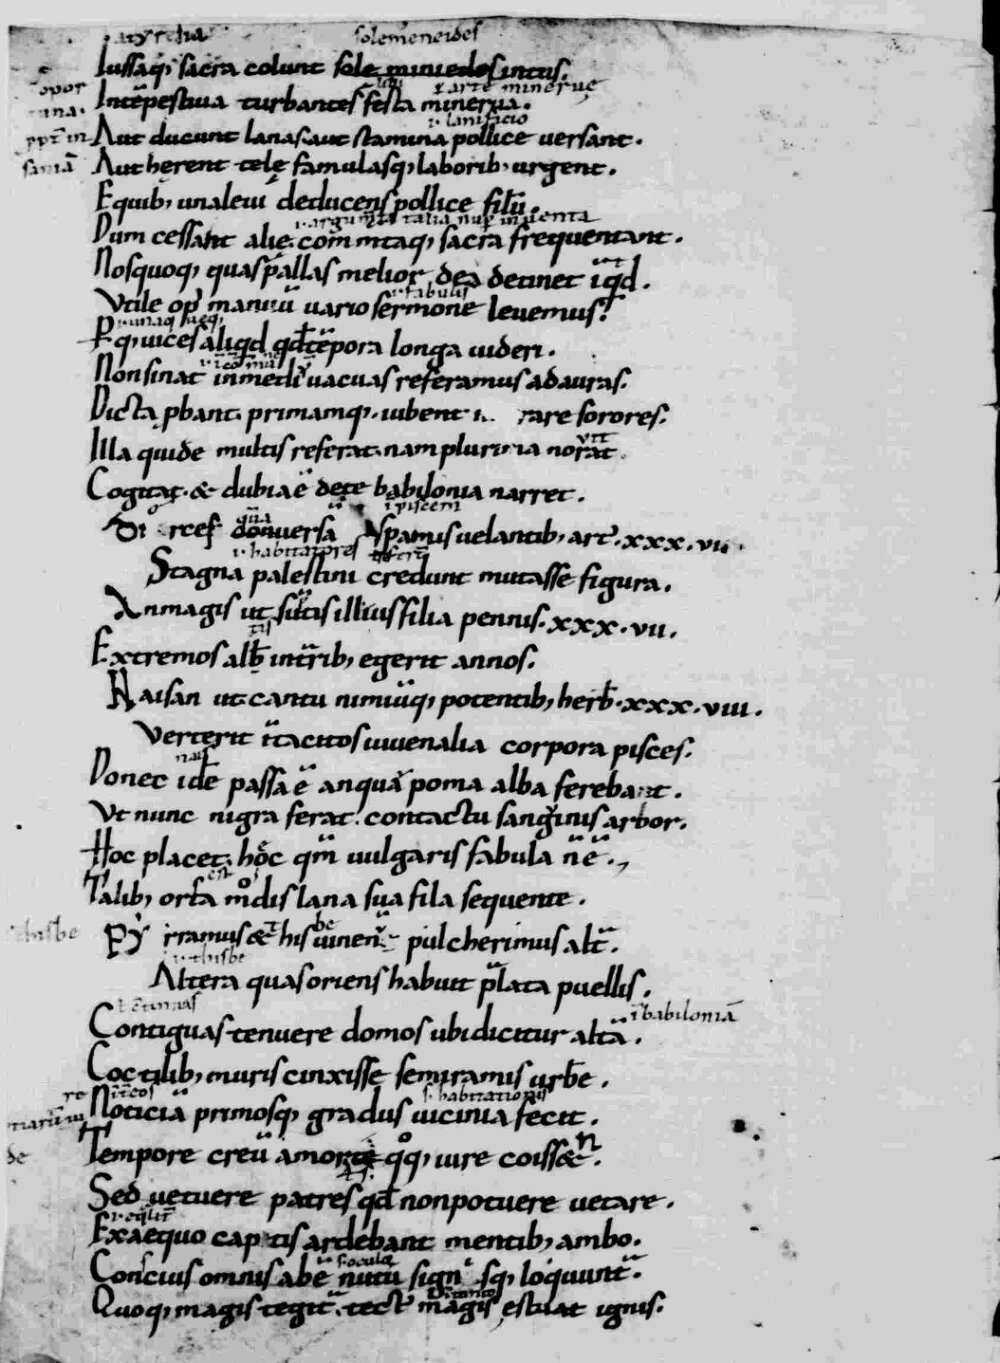 solemeneides
Iussaq; sacra colunt sole minuedes intus.
ł arte minerue
opor
Intēpestiua turbantes festa minerua.
tuna.
lanificio
ppt̄ in
Aut ducunt lanas aut stamina pollice uersant.
saniā
Aut herent telę famulasq; laborib; urgent.
Equib; una leui deducens pollice filū.
talia inuenta
Dum cessant alię. commtaq; sacra frequentant.
Nosquoq; quas pallas melior dea detinet īqd.
fabulis
Vtile op' manuū uario sermone leuemus.
Pq; uices aliqd qd tēpora longa uideri.
Non sinat inmediū uacuas referamus adaures.
Dicta pbant. primamq; iubent rare sorores.
Illa quide multis referat. nam plurima norat.
Cogitat. & dubia ē de te babilonia narret.
ī piscem
Di rces uersa spamis uelantib; art'. xxx. vii.
habitatores
Stagna palestini credunt mutasse figura.
An magis ut sūtis illiius filia pennis. xxx. vii.
Extremos alb̄ int̄rib; egerit annos.
Naisan ut cantu nimiūq; potentib; herb̄. xxx. viii.
Verterit ī tacitos iuuenalia corpora pisces.
nais
Donec idē passa ē an quā poma alba ferebant.
Vt nunc nigra ferat. contactu sanginis arbor.
Hoc placet. hęc qm̄ uulgaris fabula n̄ ē.
est
Talib; orsa modis lana sua fila sequente.
thisbe
Pyrramus & this iuuenū pulcherimus alt̄.
thisbe
Altera quas oriens habuit p̄lata puellis.
ī babiloniā
Contiguas tenuere domos ubi dicitur altā.
Coctilib; muris cinxisse semiramis urbē.
habitationis
Noticiā primosq; gradus uicinia fecit.
Tempore creū amor q°q; iure coiss&n.
de
Sed uetuere patres qd non potuere uetare.
Ex aequo captis ardebant mentib; ambo.
Conscius omnis abē nutū signisq; loquunt̄.
Quoq; magis tegit̄. tect' magis estuat ignis.